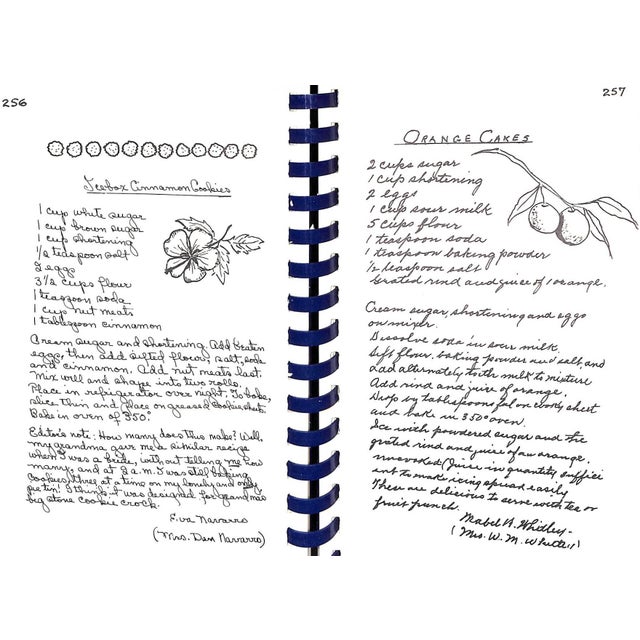 256
Icebox Cinnamon Cookies
1 cup white sugar
1 cup brown sugar
1 cup shortening
1/2 teaspoon salt
2 eggs
3 1/2 cups flour
1 teaspoon soda
1 cup nut meats
1 tablespoon cinnamon
Cream sugar and shortening. Add beaten
eggs, then add sifted flour, salt, soda
and cinnamon. Add nut meats last.
Mix well and shape into two rolls.
Place in refrigerator over night. To bake,
slice thin and place on greased cookie sheet.
Bake in oven of 350°
Editor's note: How many does this make? Well,
my grandma gave me a similar recipe
when I was a bride, without telling me how
many; and at 9 a.m. I was still baking
cookies, three at a time on my lovely and only
pie tin! I think it was designed for grandma's
big stone cookie crock.
Eva Navarro
(Mrs. Dan Navarro)
257
ORANGE CAKES
2 cups sugar
1 cup shortening
2 eggs
1 cup sour milk
5 cups flour
1 teaspoon soda
1 teaspoon baking powder
1/2 teaspoon salt
Grated rind and juice of 1 orange.
Cream sugar, shortening and eggs
on mixer.
Dissolve soda in sour milk.
Sift flour, baking powder and salt, and
add alternately with milk to mixture
Add rind and juice of orange.
Drop by tablespoons ful on cooky sheet
and bake in 350° oven.
Ice with powdered sugar and the
grated rind and juice of an orange,
uncooked (Juice in quantity suffici-
ent to make icing spread easily
These are delicious to serve with tea or
fruit punch.
Mabel N. Whidley
(Mrs. W. M.